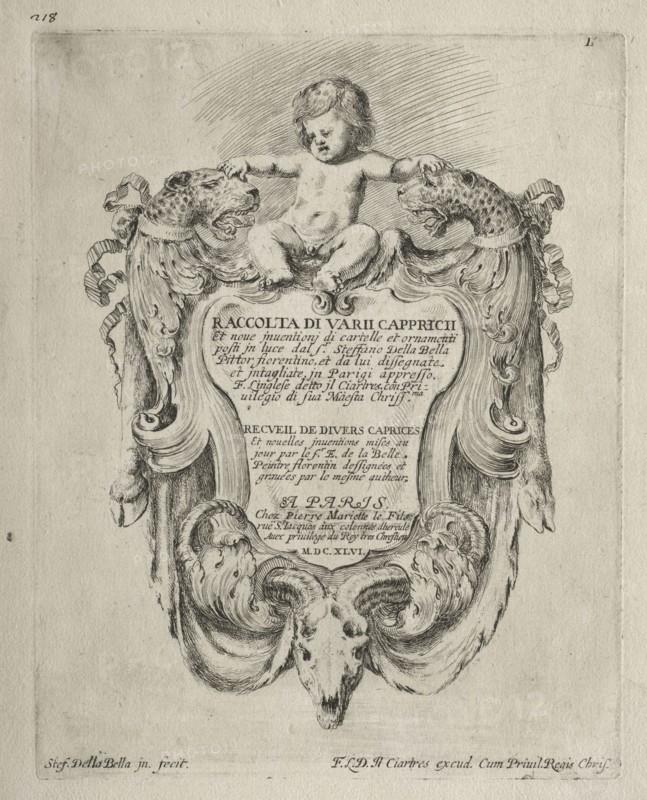 218
1.
RACCOLTA DI VARII CAPPRICII
Et noue inuentionj di cartelle et ornamenti
posti in luce dal s.r Steffano Della Bella
Pittor fiorentino, et da lui dissegnate.
et intagliate, in Parigi appresso.
F. L'inglese detto il Ciartres, con Pri-
uilegio di sua Maesta Chriss.ma
RECVEIL DE DIVERS CAPRICES
Et nouelles inuentions mises au
jour par le s.r E. de la Belle.
Peintre florentin dessignées et
grauées par le mesme autheur.
A PARIS
Chez Pierre Mariette le Fils
rue S. Iacques aux colonnes d'hercule
Auec priuilege du Roy tres Chrestien
M. DC. XLVI.
Stef. Della Bella in. fecit.
F. L. D. Il Ciartres excud. Cum Priuil. Regis Chris.